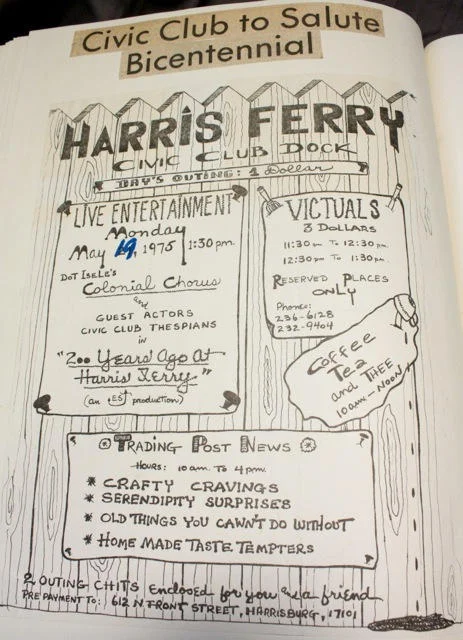 Civic Club to Salute
Bicentennial
HARRIS FERRY
CIVIC CLUB DOCK
DAY'S OUTING: 1 Dollar
LIVE ENTERTAINMENT
Monday
May 19, 1975 1:30 pm.
DOT ISELE'S
Colonial Chorus
and
GUEST ACTORS
CIVIC CLUB THESPIANS
in
"200 Years Ago At
Harris Ferry."
(an EST production)
VICTUALS
3 DOLLARS
11:30 am To 12:30 pm.
12:30 pm To 1:30 pm.
RESERVED PLACES
ONLY
Phones:
236-6128
232-9404
Coffee
Tea
and THEE
10 am - NOON
TRADING POST NEWS
HOURS: 10 am. TO 4 pm.
* CRAFTY CRAVINGS
* SERENDIPITY SURPRISES
* OLD THINGS YOU CAWN'T DO WITHOUT
* HOME MADE TASTE TEMPTERS
2 OUTING CHITS Enclosed for you and a friend
PRE PAYMENT TO: 612 N. FRONT STREET, HARRISBURG, 17101